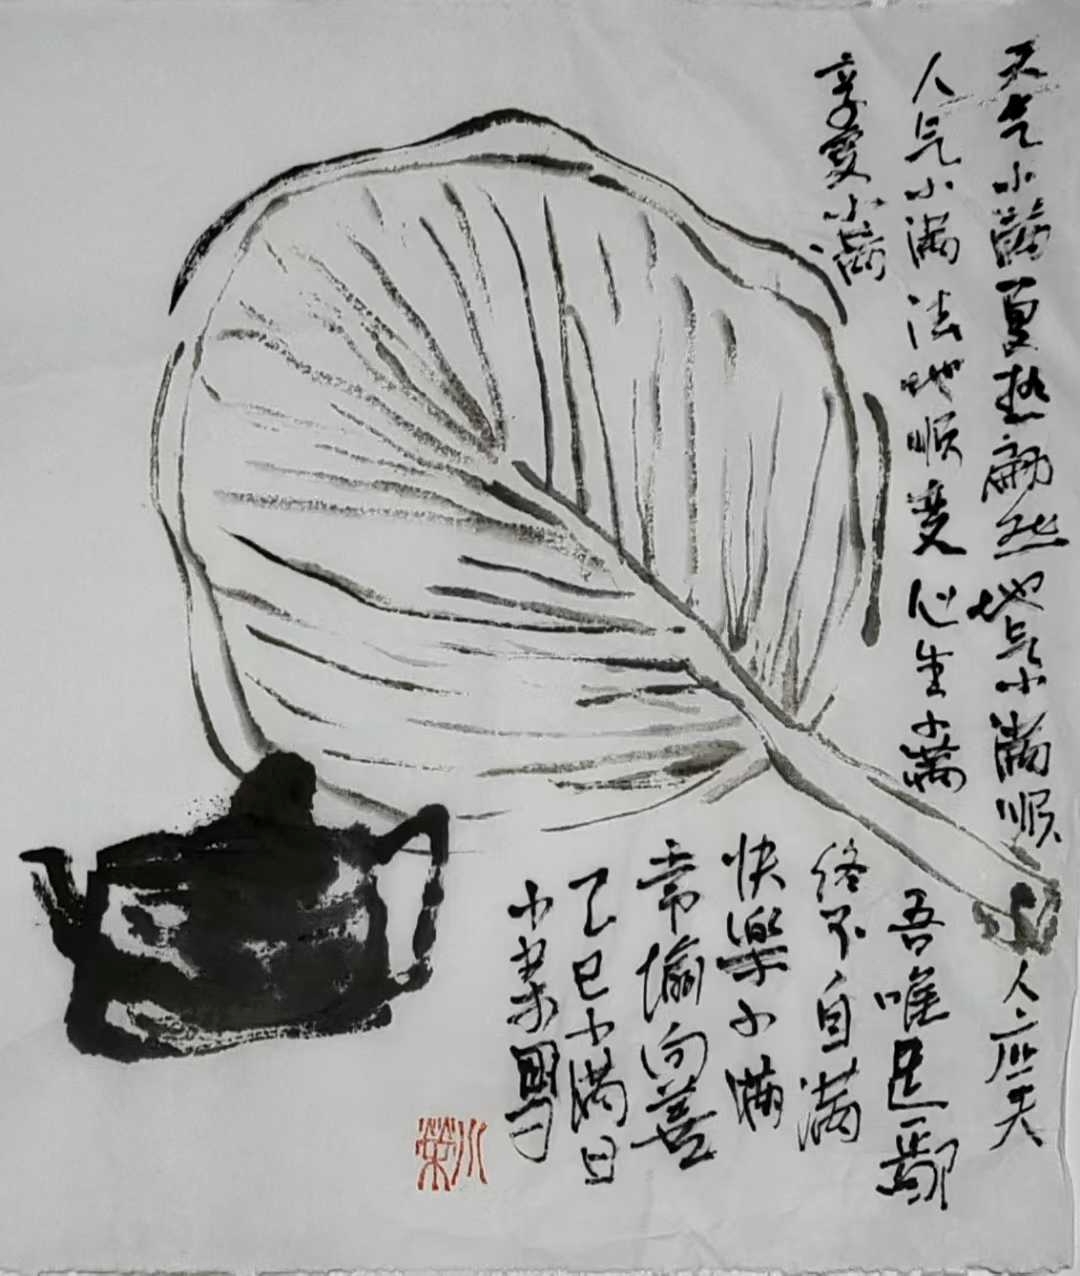 天气小满夏热然地气小满顺人应天
人气小满法地顺变心生小满吾唯足
享受小满终不自满
快樂小满
常愉向善
乙巳小满日
小荣
小荣